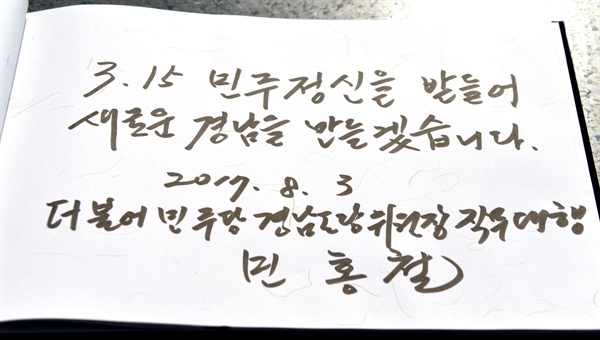 3.15 민주정신을 받들어
새로운 경남을 만들겠습니다.
2017. 8. 3
더불어민주당 경남도당위원장 직무대행
민홍철